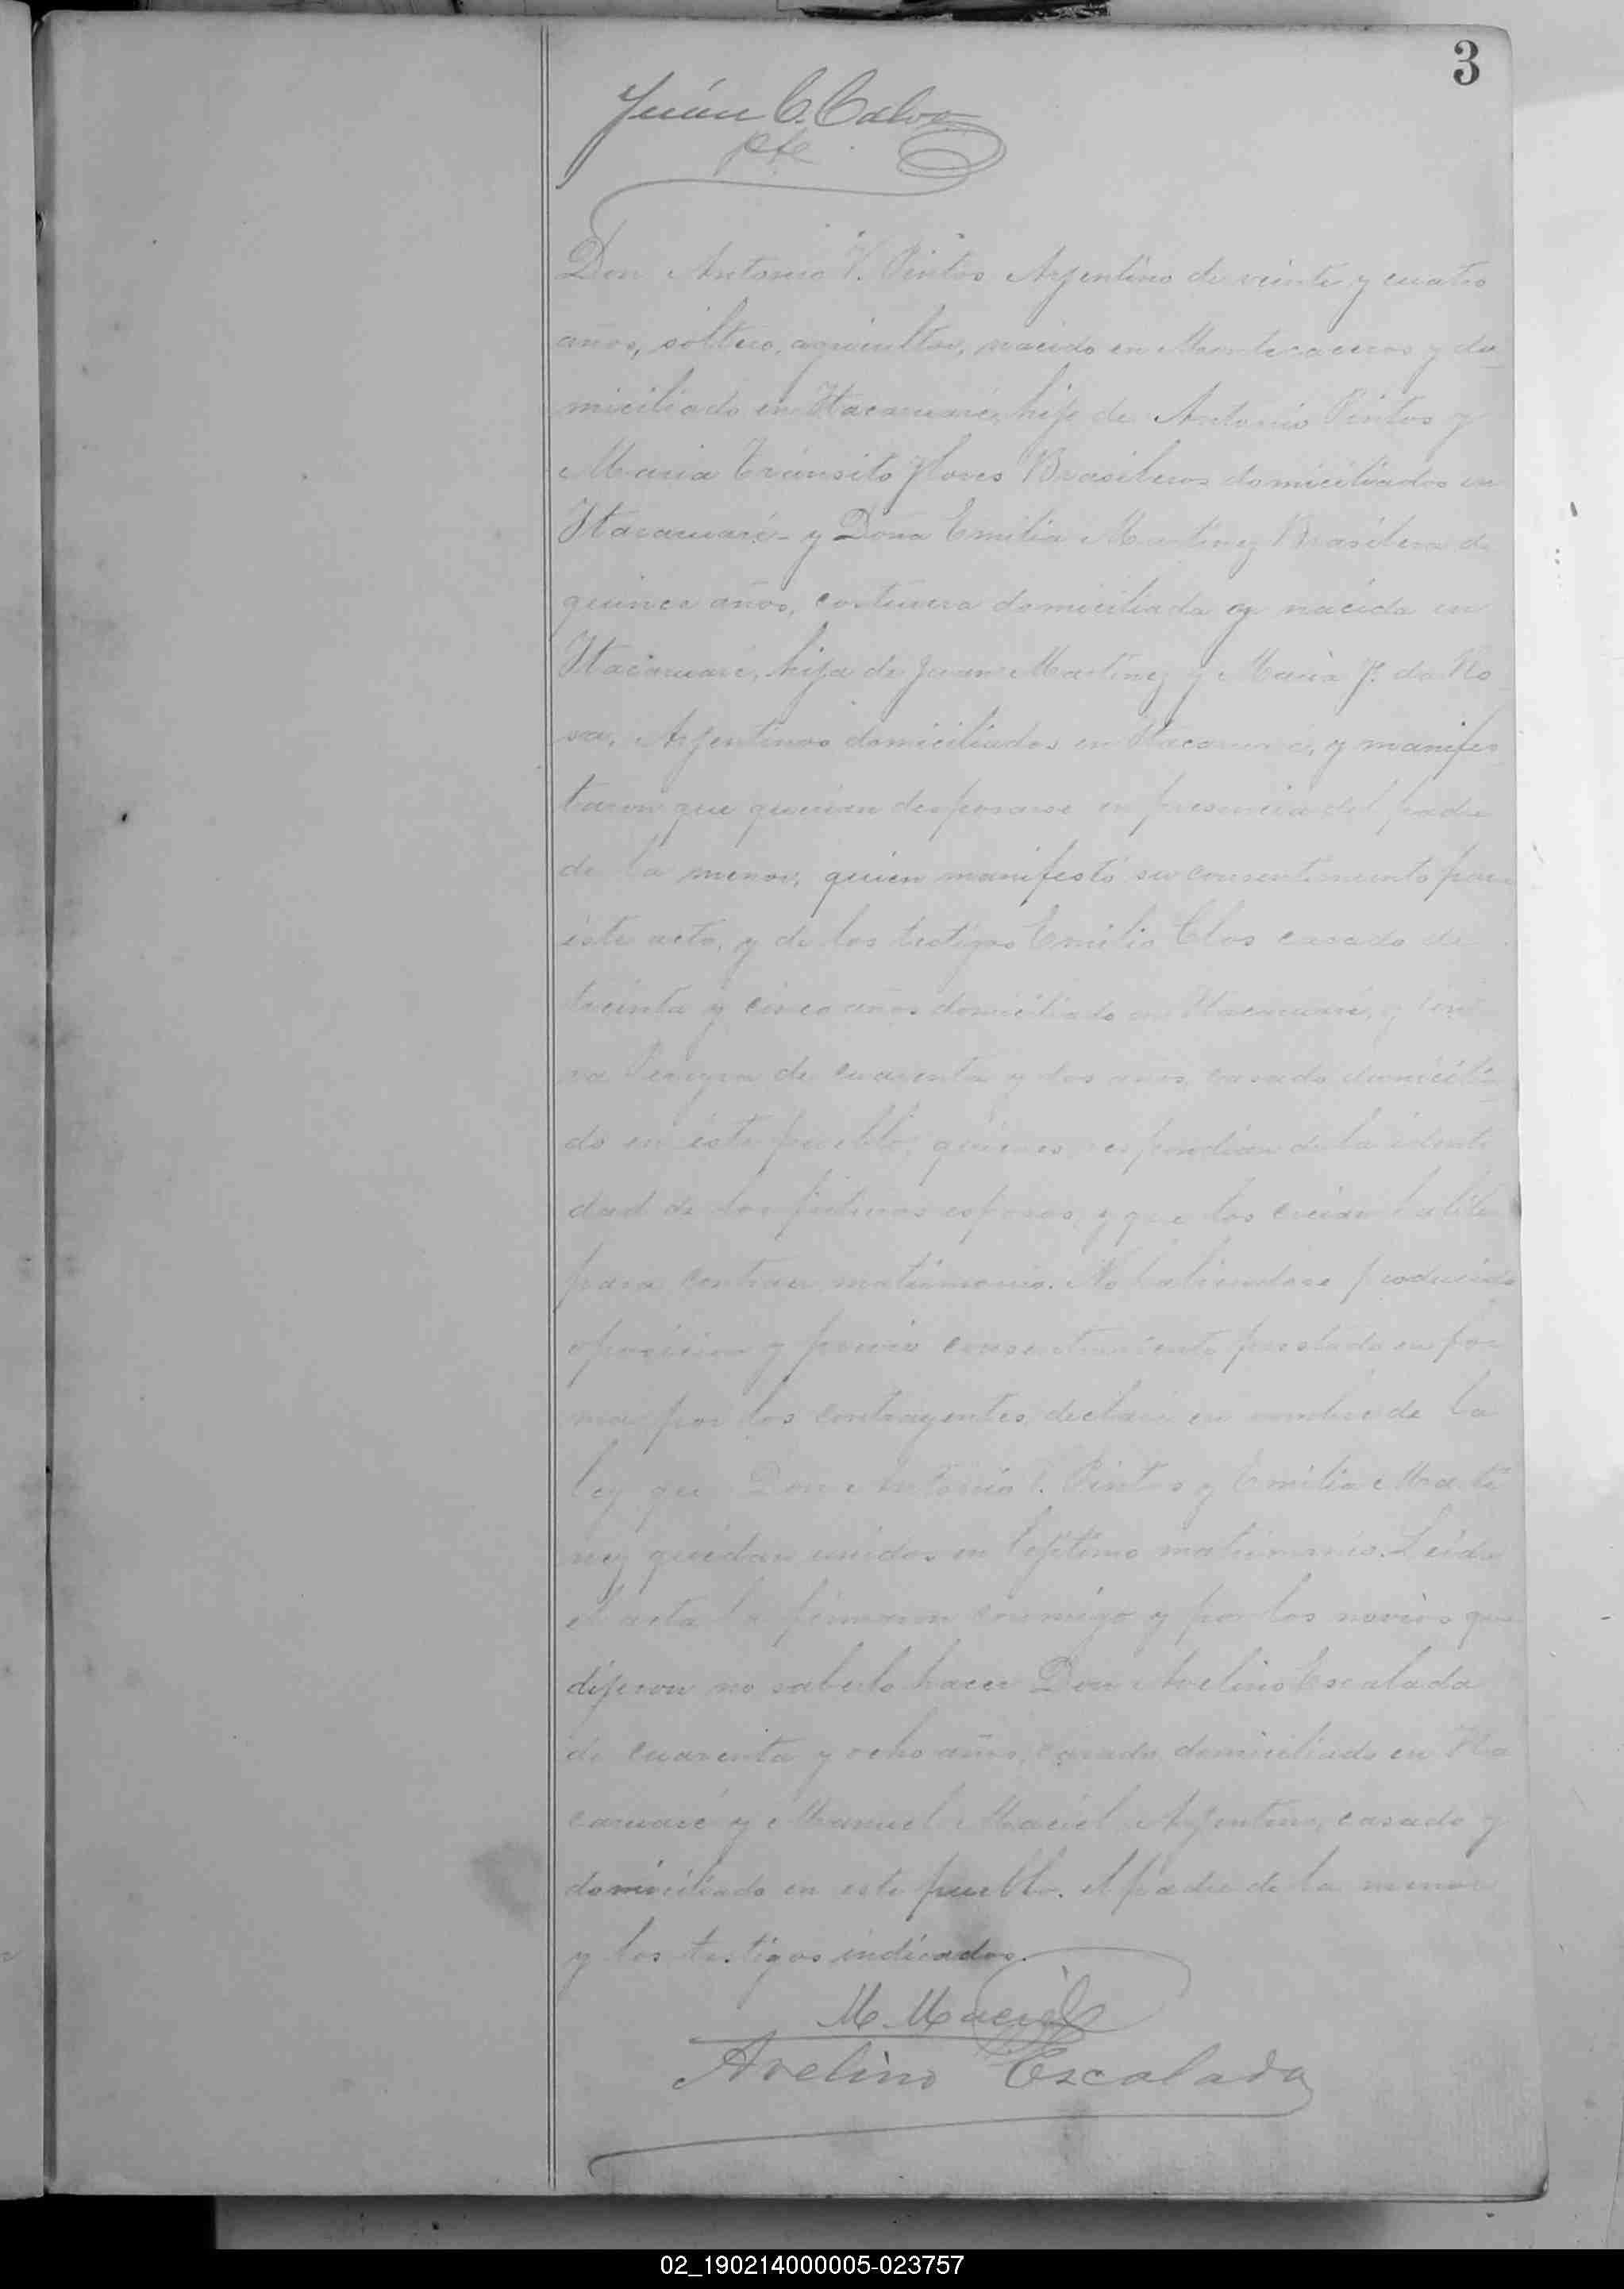 3
Juán C. Calvo
pte
Don Antonio V. Pintos Argentino de veinte y cuatro
años, soltero, agricultor, nacido en Montecaceros y do_
miciliado en Itacaruaré, hijo de Antonio Pintos y
Maria Tránsito Flores Brasileros domiciliados en
Itacaruaré - y Doña Emilia Martinez Brasilera de
quince años, costurera domiciliada y nacida en
Itacaruaré, hija de Juan Martinez y Maria F. da Ro_
sa, Argentinos domiciliados en Itacaruaré, y manifes_
taron que querian desposarse en presencia del padre
de la menor, quien manifestó su consentimiento para
éste acto, y de los testigos Emilio Clos casado de
treinta y cinco años domiciliado en Itacaruaré, y
de cuarenta y dos años, casado domicilia_
do en éste pueblo, quienes respondian de la identi
dad de los futuros esposos, y que los creian
para contraer matrimonio. No habiendose producido
oposicion y previo consentimiento prestado en for
ma por los contrayentes, declaré en nombre de la
ley que Don Antonio V. Pintos y Emilia Marti
nez quedan unidos en lejitimo matrimonio. Leida
el acta la firmaron conmigo y por los novios que
dijeron no saberlo hacer Don Avelino Escalada
de cuarenta y ocho años, casado, domiciliado en Ita
caruaré y Manuel Maciel Argentino, casado y
domiciliado en este pueblo. el padre de la menor
y los testigos indicados.
M. Maciel
Avelino Escalada
02_190214000005-023757